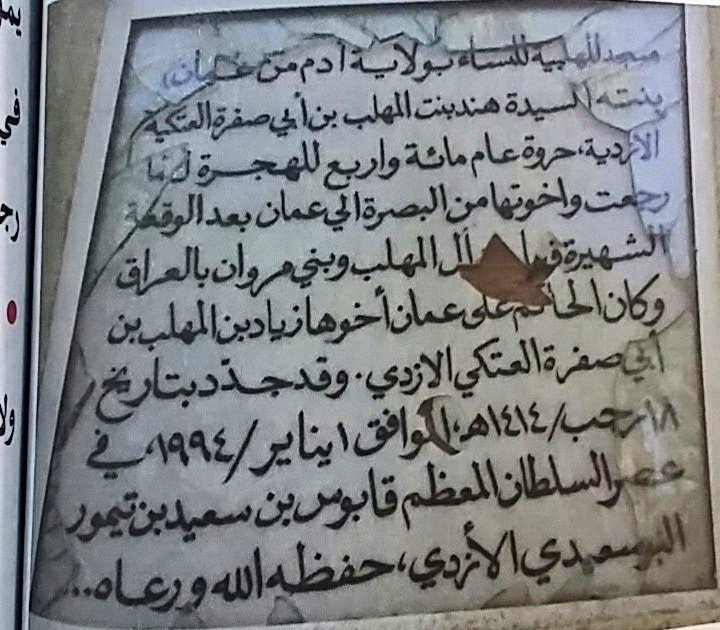 مسجد المهلبية للنساء بولاية أدم من عمان،
بنته السيدة هند بنت المهلب بن أبي صفرة العتكية
الأزدية، حروة عام مائة واربع للهجرة لما
رجعت واخوتها من البصرة الي عمان بعد الوقعة
الشهيرة آل المهلب وبني مروان بالعراق
وكان الحاكم على عمان أخوها زياد بن المهلب بن
أبي صفرة العتكي الازدي. وقد جدد بتاريخ
١٨ رجب/١٤١٤هـ، الموافق ١ يناير/١٩٩٤، في
عصر السلطان المعظم قابوس بن سعيد بن تيمور
البوسعيدي الأزدي، حفظه الله ورعاه...